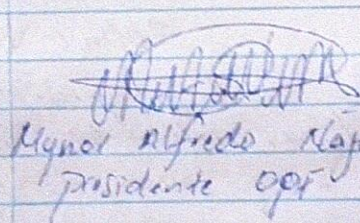 Mynor Alfredo Naj
presidente